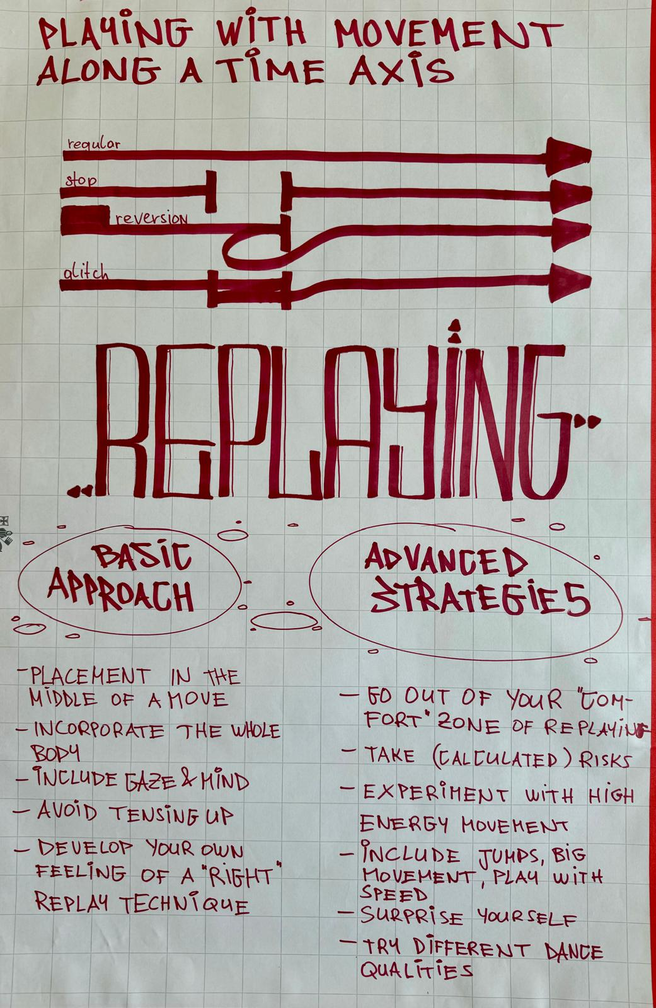 PLAYING WITH MOVEMENT
ALONG A TIME AXIS
regular
stop
reversion
glitch
..REPLAYING..
BASIC
APPROACH
- PLACEMENT IN THE
MIDDLE OF A MOVE
- INCORPORATE THE WHOLE
BODY
- INCLUDE GAZE & MIND
- AVOID TENSING UP
- DEVELOP YOUR OWN
FEELING OF A "RIGHT"
REPLAY TECHNIQUE
ADVANCED
STRATEGIES
- GO OUT OF YOUR "COM-
FORT" ZONE OF REPLAYING
- TAKE (CALCULATED) RISKS
- EXPERIMENT WITH HIGH
ENERGY MOVEMENT
- INCLUDE JUMPS, BIG
MOVEMENT, PLAY WITH
SPEED
- SURPRISE YOURSELF
- TRY DIFFERENT DANCE
QUALITIES